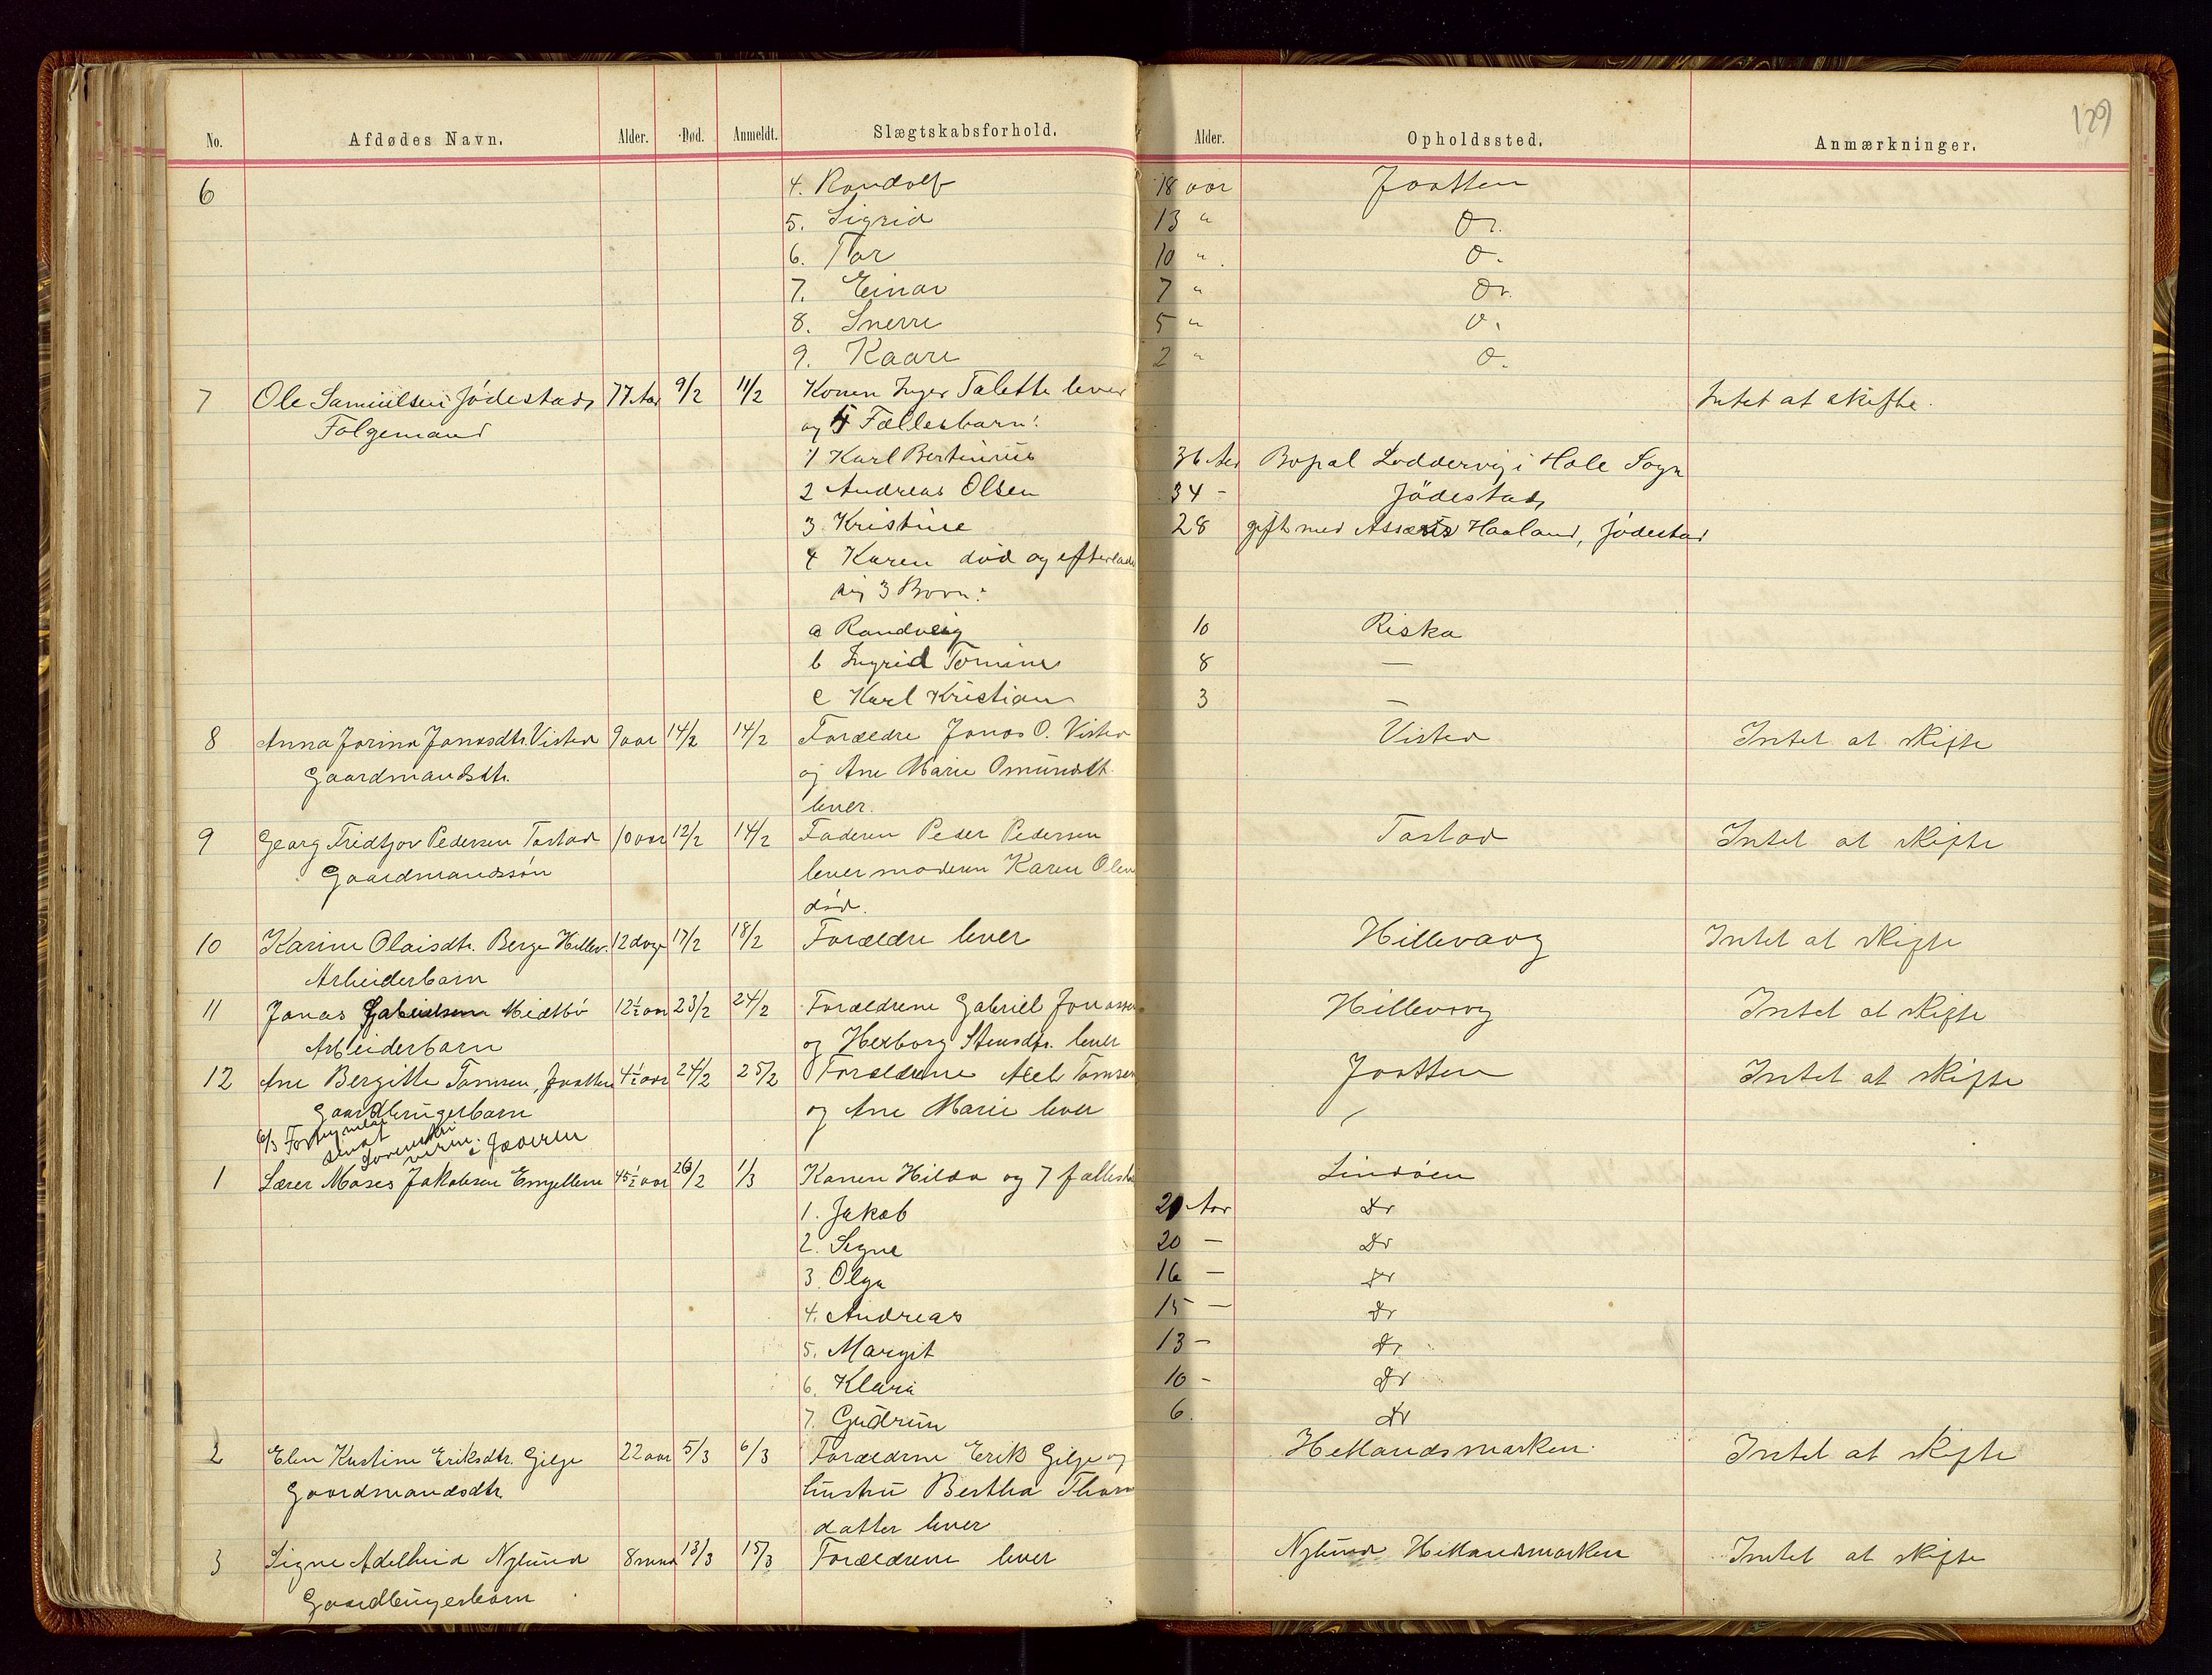 129
No. Afdødes Navn. Alder. Død. Anmeldt. Slægtskabsforhold. Alder. Opholdssted. Anmærkninger.
6 4. Randolf 18 aar Jaatten
5. Sigrid 13 " Do.
6. Tor 10 " Do.
7. Einar 7 " Do.
8. Sverre 5 " Do.
9. Kaare 2 " Do.
7 Ole Samuelsen Jödestad, 77 Aar 9/2 11/2 Konen Inger Talette lever Intet at skifte.
Følgemand og 5 Fællesbarn:
1 Karl Bertinius 36 Aar Bopæl Loddervig i Hole Sogn
2 Andreas Olsen 34 - Jödestad,
3 Kristine 28 gift med Assæris Haaland, Jödestad
4 Karen död og efterlade
sig 3 Børn:
a Randveig 10 Riska
b Ingrid Tomine 8 —
c Karl Kristian 3 —
8 Anna Jorina Jonasdtr. Visted 9 aar 14/2 14/2 Forældre Jonas O. Visted Visted Intet at skifte
Gaardmandsdtr. og Ane Marie Omundsdt.
lever.
9 Georg Fridtjov Pedersen Tastad 10 aar 12/2 14/2 Faderen Peder Pedersen Tastad Intet at skifte
Gaardmandssön lever moderen Karen Olen
död.
10 Karine Olaisdtr. Berge Hillev. 12 dage 17/2 18/2 Forældre lever Hillevaag Intet at skifte
Arbeiderbarn
11 Jonas Gabrielsen Midtbö 12½ aar 23/2 24/2 Forældrene Gabriel Jonassen Hillevaag Intet at skifte
Arbeiderbarn og Herborg Stensdtr. lever
12 Ane Bergitte Tomsen, Jaatten 4½ aar 24/2 25/2 Forældrene Axel Tomsen Jaatten Intet at skifte
Gaardbrugerbarn og Ane Marie lever
6/3 sendt Sorenskriveren i Jæderen
1 Lærer Moses Jakobsen Engellem 45½ aar 26/2 1/3 Konen Hilda og 7 fællesbö Lindöen
1. Jakob 21 Aar Do
2. Signe 20 — Do
3. Olga 16 — Do
4. Andreas 15 — Do
5. Margit 13 - Do
6. Klara 10 - Do
7. Gudrun 6. Do
2 Elen Kristine Eriksdtr. Gilje 22 aar 5/3 6/3 Forældrene Erik Gilje og Hetlandsmarken. Intet at skifte
Gaardmandsdtr. hustru Bertha Thom
datter lever
3 Signe Adelheid Nylund 8 mnd 13/3 15/3 Forældrene lever Nylund Hetlandsmarken Intet at skifte
Gaardbrugerbarn